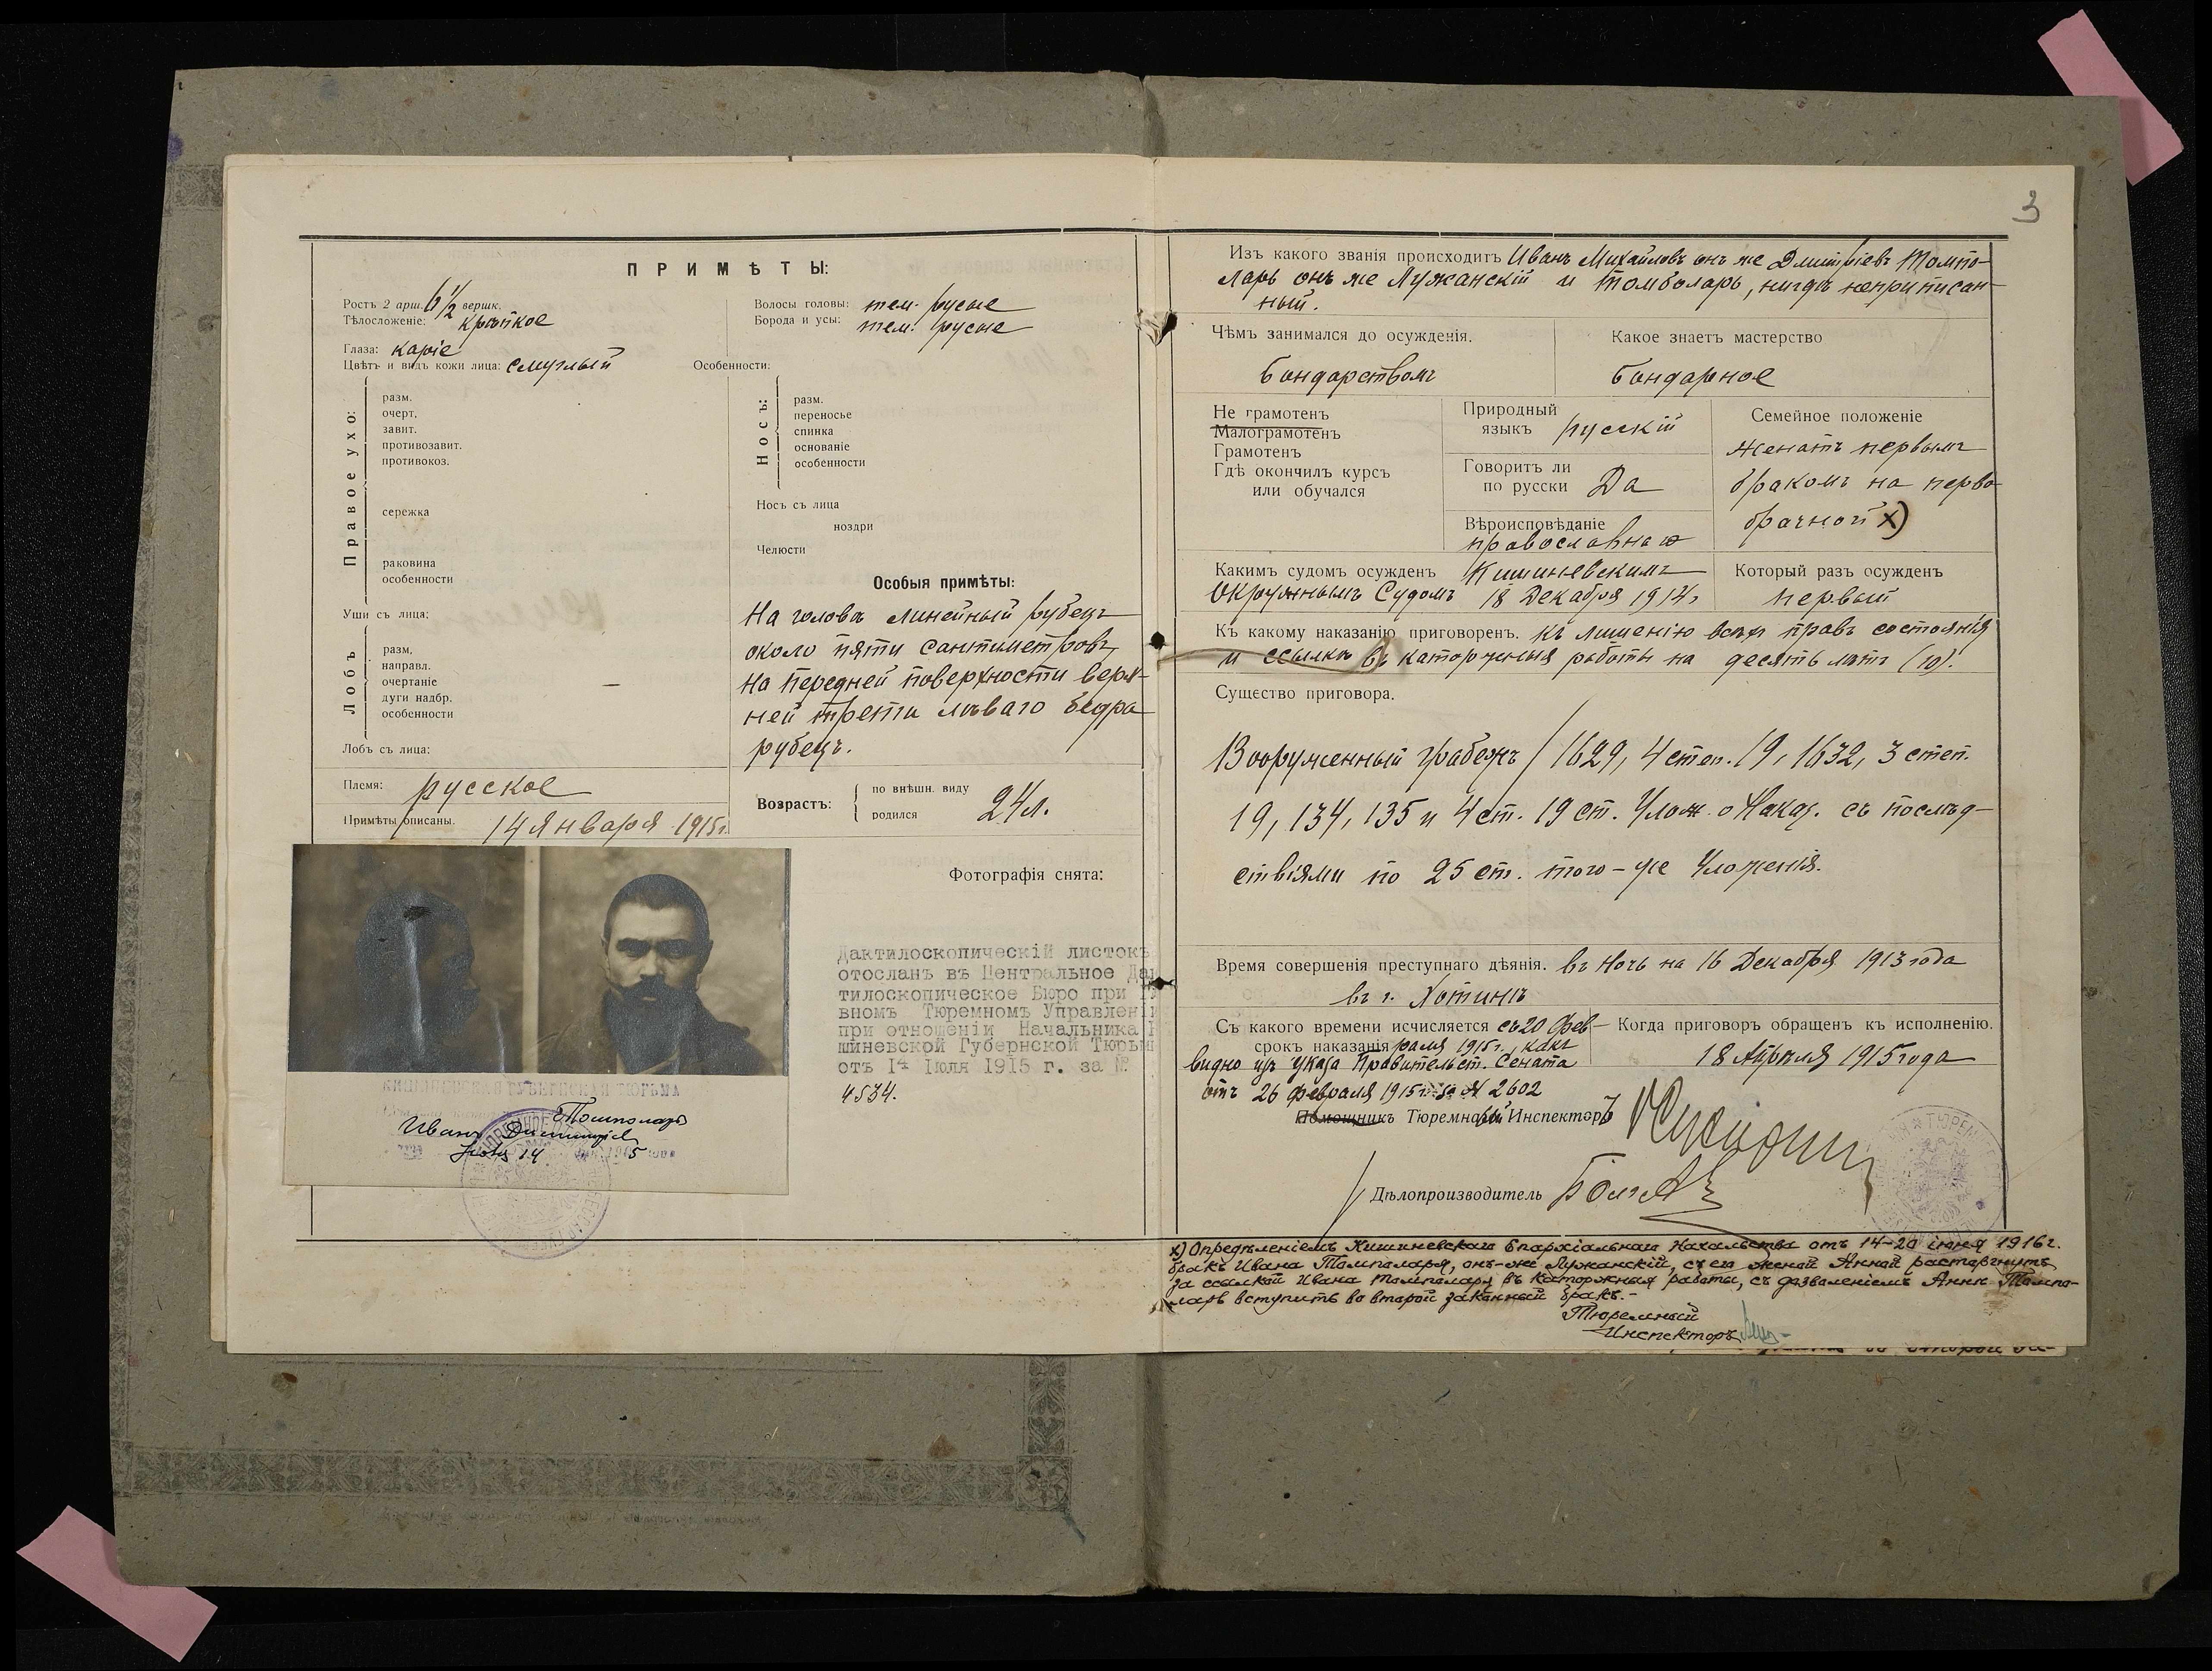 3
ПРИМѢТЫ:
Ростъ 2 арш. 6 1/2 вершк.
Тѣлосложеніе: крѣпкое
Глаза: каріе
Цвѣтъ и видъ кожи лица: смуглый
Волосы головы: тем. русые
Борода и усы: тем. русые
Особенности:
Правое ухо:
разм.
очерт.
завит.
противозавит.
противокоз.
сережка
раковина
особенности
Уши съ лица:
Лобъ
разм.
направл.
очертаніе
дуги надбр.
особенности
Лобъ съ лица:
Племя: русское
Примѣты описаны. 14 Января 1915 г.
Носъ:
разм.
переносье
спинка
основаніе
особенности
Носъ съ лица
ноздри
Челюсти
Особыя примѣты:
На головѣ линейный рубецъ
около пяти сантиметровъ,
на передней поверхности верх-
ней трети лѣваго бедра
рубецъ.
Возрастъ:
по внѣшн. виду
родился
24 л.
Фотографія снята:
Дактилоскопическій листокъ
отосланъ въ Центральное Дак
тилоскопическое Бюро при Гл
вномъ Тюремномъ Управлені
при отношеніи Начальника К
шиневской Губернской Тюрьм
отъ 14 Іюля 1915 г. за №
4534.
КИШИНЕВСКАЯ ГУБЕРНСКАЯ ТЮРЬМА
Томполарь
Иванъ Дмитріев
Іюля 14 5
Изъ какого званія происходитъ Иванъ Михайловъ онъ же Дмитріевъ Томпо-
ларь онъ же Лужанскій и Томболарь, нигдѣ неприписан-
ный.
Чѣмъ занимался до осужденія.
бондарствомъ
Какое знаетъ мастерство
бондарное
Не грамотенъ
Малограмотенъ
Грамотенъ
Гдѣ окончилъ курсъ
или обучался
Природный
языкъ русскій
Говоритъ ли
по русски Да
Вѣроисповѣданіе
православнаго
Семейное положеніе
женатъ первымъ
бракомъ на перво-
брачной х)
Какимъ судомъ осужденъ Кишиневскимъ
Окружнымъ Судомъ 18 Декабря 1914 г.
Который разъ осужденъ
первый
Къ какому наказанію приговоренъ. къ лишенію всѣхъ правъ состоянія
и ссылкѣ въ каторжныя работы на десять лѣтъ (10).
Существо приговора.
Вооруженный грабежъ / 1629, 4 степ. 19, 1632, 3 степ.
19, 134, 135 и 4 ст. 19 ст. Улож. о Наказ. съ послѣд-
ствіями по 25 ст. того-же Уложенія.
Время совершенія преступнаго дѣянія. въ ночь на 16 Декабря 1913 года
въ г. Хотинѣ
Съ какого времени исчисляется съ 20 Фев-
срокъ наказанія раля 1915 г., какъ
видно изъ Указа Правительст. Сената
отъ 26 февраля 1915 г. за № 2602
Когда приговоръ обращенъ къ исполненію.
18 Апрѣля 1915 года
Помощникъ Тюремный Инспекторъ
Дѣлопроизводитель
х) Опредѣленіемъ Кишиневскаго Епархіальнаго Начальства отъ 14-20 іюня 1916 г.
бракъ Ивана Томполаря, онъ-же Лужанскій, съ его женой Анной расторгнутъ
за ссылкой Ивана Томполаря въ каторжныя работы, съ дозволеніемъ Аннѣ Томпо-
ларь вступить во второй законный бракъ.-
Тюремный
Инспекторъ